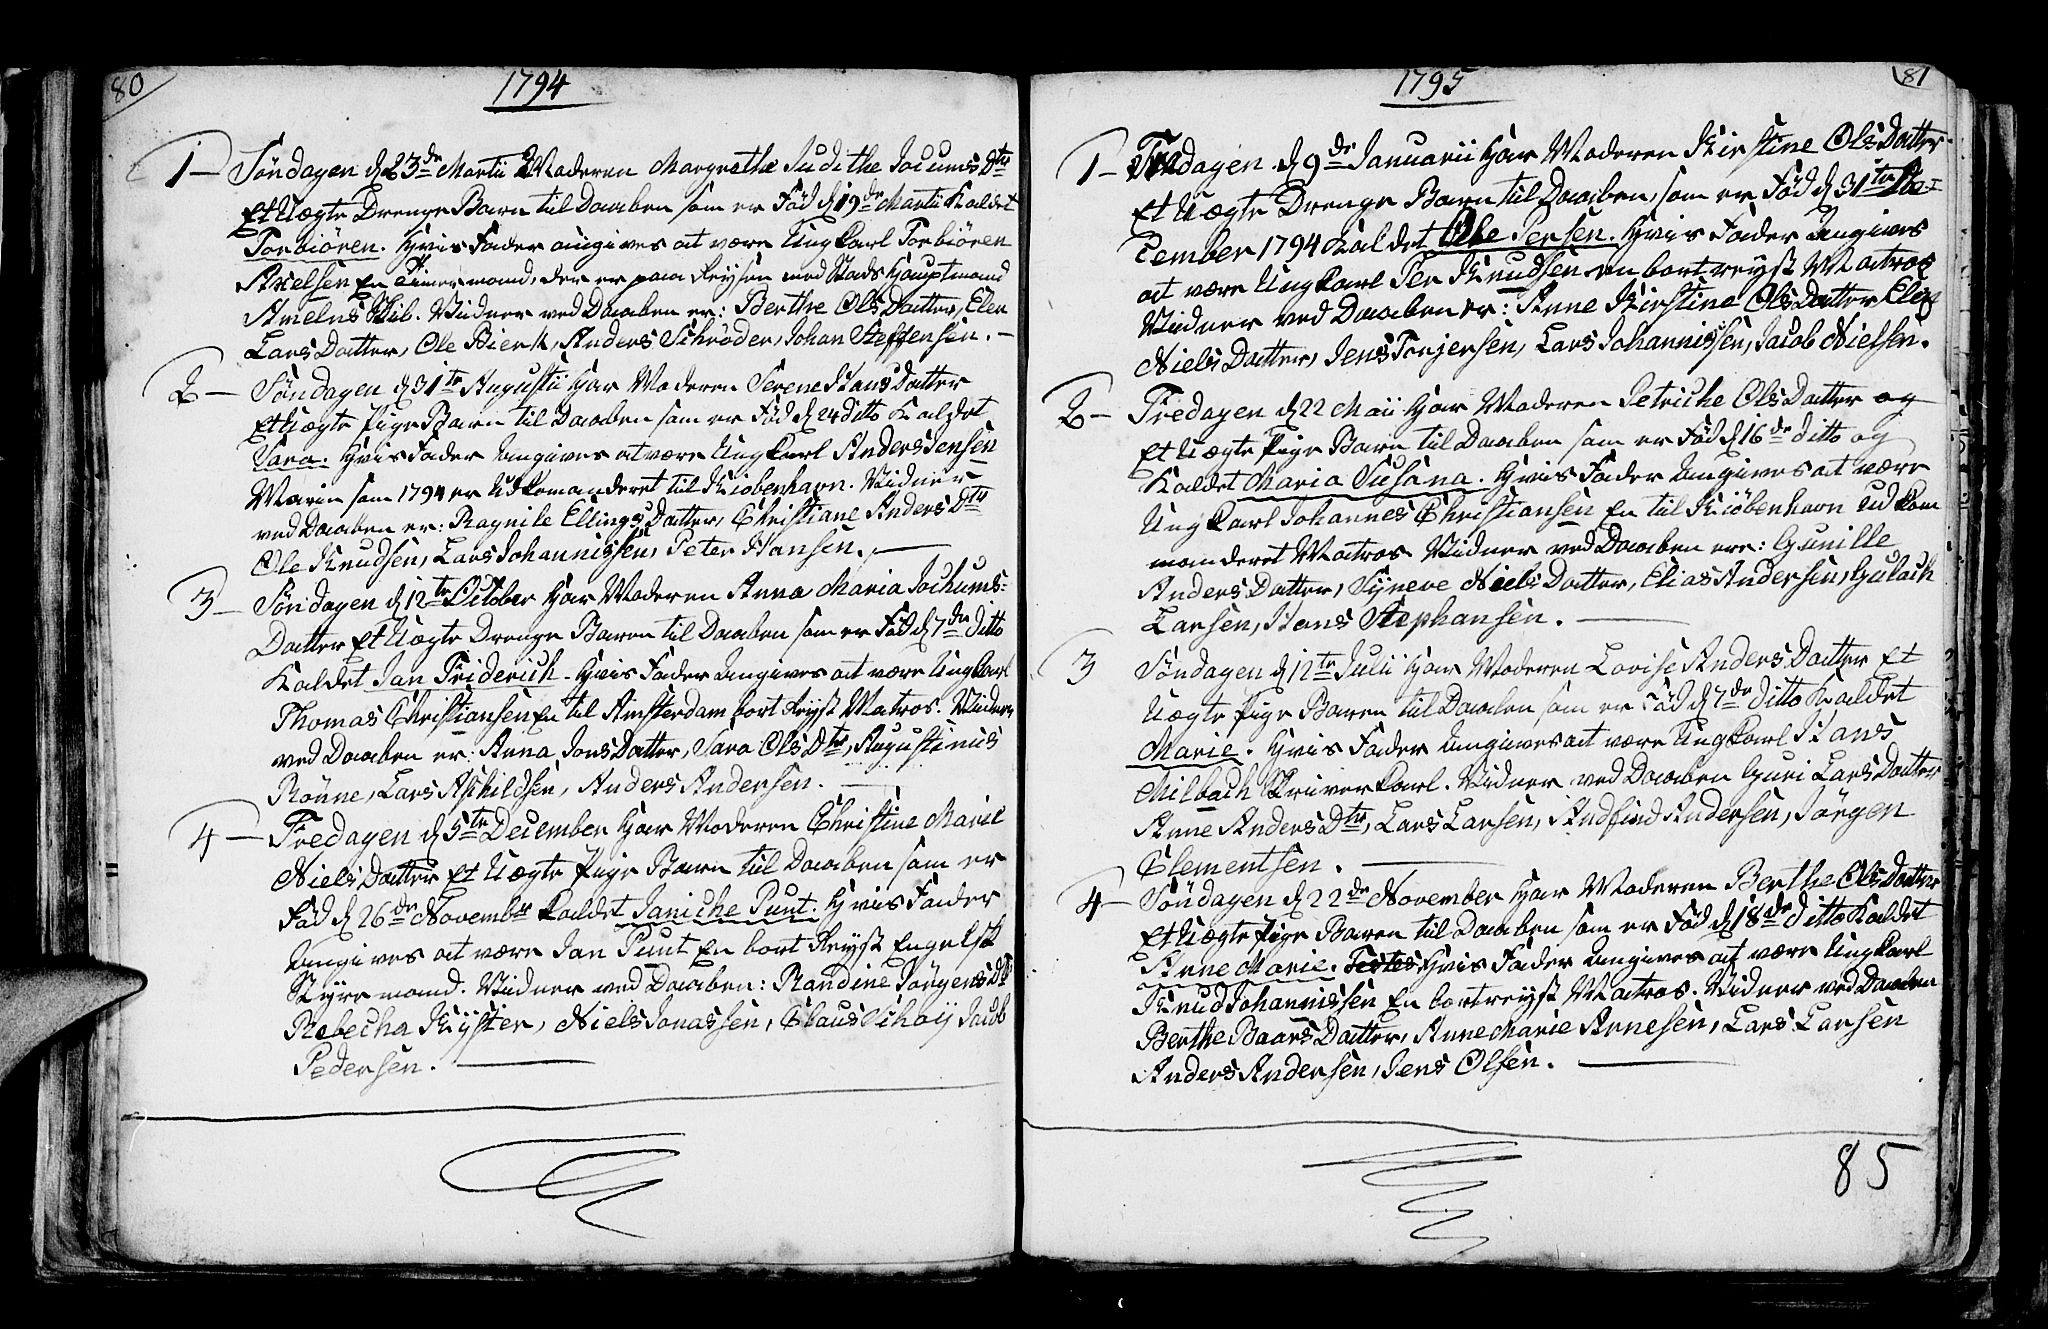 80
1794
1 — Søndagen d 23de Martii Moderen Margrethe Judithe Jocums Dtr
Et Uægte Drenge Barn til Daaben som er Fød d 19de Martii Kaldet
Torbiören. Hvis Fader angives at være Ungkarl Torbiören
Axelsen En Timermand, der er paa Reysen med Stads Hauptmand
Amelns Skib. Vidner ved Daaben er: Berthe Ols Datter, Elen
Lars Datter, Ole Bierk, Anders Schrøder, Johan Steffensen. —
2 — Søndagen d 31te Augustii har Moderen Serene Hans Datter
Et Uægte Pige Barn til Daaben som er Fød d 24 ditto Kaldet
Sara. Hvis Fader Angives at være Ungkarl Anders Jensen
Marin som 1794 er Udkomanderet til Kiøbenhavn. Vidner
ved Daaben er: Ragnile Ellings Datter, Christiane Anders Dtr
Ole Knudsen, Lars Johannissen, Peter Hansen. —
3 — Søndagen d 12te October har Moderen Anna Maria Jochums-
Datter Et Uægte Drenge Baren til Daaben som er Fød d 7de ditto
Kaldet Jan Friderich. Hvis Fader Angives at være Ungkarl
Thomas Christiansen En til Amsterdam bort Reyst Matros. Vidner
ved Daaben er: Anna Jons Datter, Sara Ols Dtr, Augustinus
Rönne, Lars Aschildsen, Anders Andersen. —
4 — Fredagen d 5te December har Moderen Christine Marie
Niels Datter Et Uægte Pige Barn til Daaben som er
Fød d 26de Novembr Kaldet Janiche Punt. Hvis Fader
Angives at være Jan Punt En bort Reyst Engelsk
Styremand. Vidner ved Daaben: Randine Jørgens Dtr
Rebecha Kiyster, Niels Jonassen, Claus Schøy Jacob
Pedersen. —
81
1795
1 — Fredagen d 9de Januarii har Moderen Kirstine Ols Datter
Et Uægte Drenge Barn til Daaben, som er Fød d 31te De-
cember 1794 Kaldet Ole Persen. Hvis Fader Angives
at være Ungkarl Per Knudsen en bortreyst Matros
Vidner ved Daaben er: Anne Kirstine Ols Datter Elen
Niels Datter, Jens Torjersen, Lars Johannissen, Jacob Nielsen.
2 — Fredagen d 22 Maii har Moderen Petriche Ols Datter og
Et Uægte Pige Barn til Daaben som er Fød d 16de ditto og
Kaldet Maria Susana. Hvis Fader Angives at være
Ungkarl Johannes Christiansen En til Kiöbenhavn Udkom
manderet Matros. Vidner ved Daaben ere: Gunille
Anders Datter, Syneve Niels Datter, Elias Andersen, Gulach
Larsen, Hans Stephansen. —
3 Søndagen d 12te Julii har Moderen Lovise Anders Datter Et
Uægte Pige Baren til Daaben som er Fød d 7de ditto Kaldet
Marie. Hvis Fader Angives at være Ungkarl Hans
Milbach Skriverkarl. Vidner ved Daaben Guri Lars Datter
Anne Anders Dtr, Lars Larsen, Andfind Andersen, Jörgen
Clementsen. —
4 — Søndagen d 22de November har Moderen Berthe Ols Datter
Et Uægte Pige Baren til Daaben som er Fød d 18de ditto Kaldet
Anne Marie. Testes Hvis Fader Angives at være Ungkarl
Knud Johannissen En bortreyst Matros. Vidner ved Daaben
Berthe Baars Datter, Anne Marie Arnesen, Lars Larsen
Anders Andersen, Jens Olsen. —
85